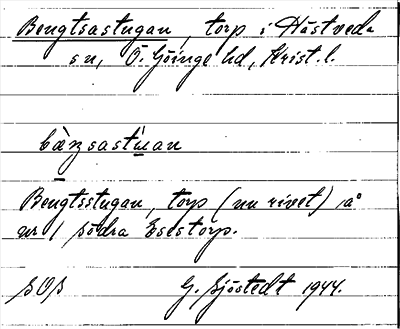 Bengtsastugan, torp i Hästveda
sn, Ö. Göinge hd, Krist. l.
Bengtsstugan, torp (nu rivet) å
nr 1 södra Esestorp.
SOS G. Sjöstedt 1944.